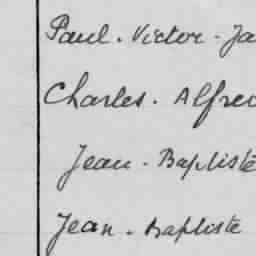 Paul. Victor. Ja
Charles. Alfred
Jean. Baptiste
Jean. Baptiste